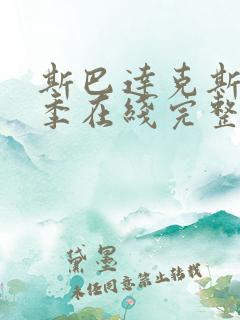 斯巴达克斯
季在线完整
黛墨
未经同意禁止转载